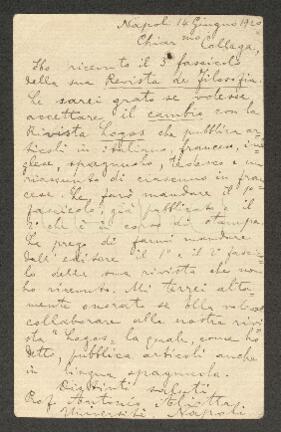 Napoli 14 Giugno 1920
Chiar.mo Collega,
Ho ricevuto il 3° fascicolo
della sua Revista de Filosofia.
Le sarei grato se volesse
accettare il cambio con la
Rivista Logos che pubblica ar-
ticoli in italiano, francese, in-
glese, spagnuolo, tedesco e un
riassunto di ciascuno in fran-
cese. Le farò mandare il 1°
fascicolo, già pubblicato e il
2° che è in corso di stampa.
La prego di farmi mandare
dall'editore il 1° e il 2° fasci-
colo della sua rivista che non
ho ricevuto. Mi terrei alta-
mente onorato se ella volesse
collaborare alla nostra rivi-
sta Logos, la quale, come ho
detto, pubblica articoli anche
in lingua spagnuola.
Distinti saluti,
Prof. Antonio Aliotta
Università Napoli